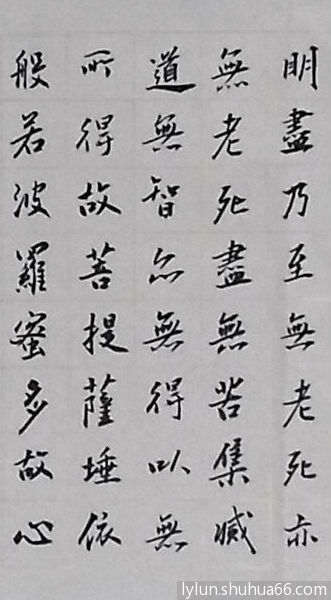 明盡乃至無老死亦
無老死盡無苦集滅
道無智亦無得以無
所得故菩提薩埵依
般若波羅蜜多故心
lylun.shuhua66.com